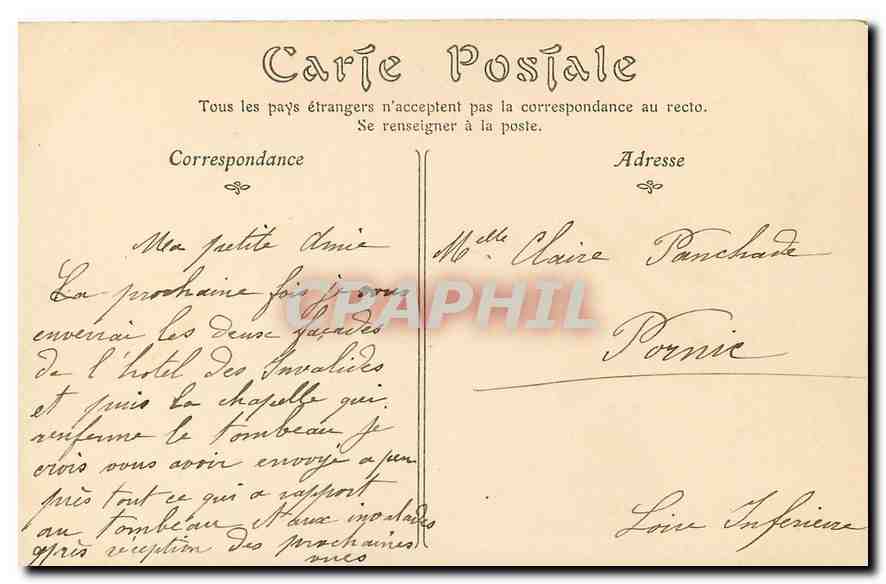 Carte Postale
Tous les pays étrangers n'acceptent pas la correspondance au recto.
Se renseigner à la poste.
Correspondance
Ma petite Amie
La prochaine fois je vous
enverrai les deux façades
de l'hotel des Invalides
et puis La chapelle qui
renferme le tombeau je
crois vous avoir envoyé a peu
près tout ce qui a rapport
au tombeau et aux invalides
après réception des prochaines
vues
Adresse
Melle Claire Panchade
Pornic
Loire Inférieure
CPAPHIL